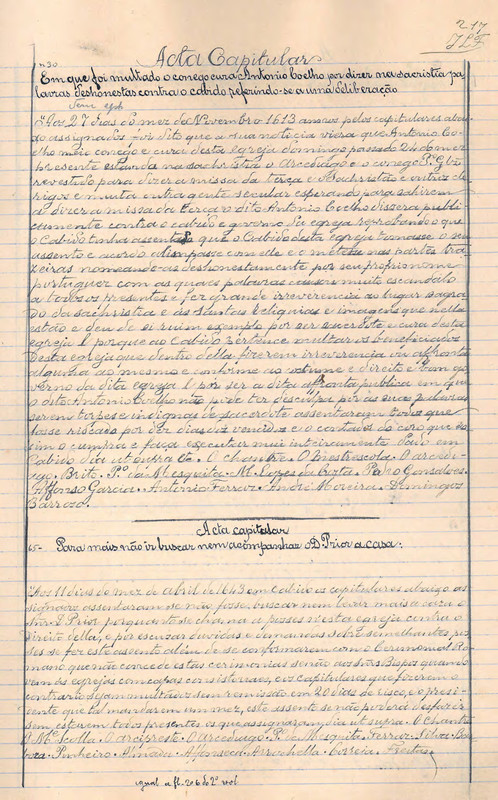 217
nº30
Acta Capitular
Em que foi multado o conego cura Antonio Coelho por dizer na sacristia pa-
lavras deshonestas contra o cabido referindo-se a uma deliberação
Aos 27 dias do mez de Novembro 1613 annos pelos capitulares abai-
xo assignados foi dito que a sua noticia viera que Antonio Co-
elho meio conego e cura desta egreja domingo passado 24 do mez
presente estando na sachristia o Arcediago e o conego Pº
revestido para dizer a missa da terça e o Sachristão e outros cle-
rigos e muita outra gente secular esperando para sahirem
a dizer a missa da terça o dito Antonio Coelho dissera publi-
camente contra o cabido e governo da egreja reprobando o que
o Cabido tinha assentado que o Cabido desta egreja tomasse o seu
assento e acordo alimpasse com elle e o metesse nas partes tra-
zeiras nomeando-as deshonestamente por seu proprio nome
portuguez com as quaes palavras causou muito escandalo
a todos os presentes e fez grande irreverencia ao lugar sagra-
do da sachristia e ás santas reliquias e imagens que nella
estão e deu de si ruim exemplo por ser sacerdote e cura desta
egreja e porque ao Cabido pertence multar os beneficiados
desta egreja que dentro della fizerem irreverencia ou affronta
alguma ao mesmo e conforme ao costume e direito e bom go-
verno da dita egreja e por ser a dita affronta publica em que
o dito Antonio Coelho não pode ter desculpa por as suas palavras
serem torpes e indignas de sacerdote assentaram todos que
fosse riscado por dez dias de vencidos e o contador do coro que as-
sim o cumpra e faça executar mui inteiramente. Dado em
Cabido dia ut supra etc. O Chantre. O Mestrescola. O arcedia-
go. Brito. Pº da Mesquita. M. da Costa. Pedro Gonsalves.
Affonso Garcia. Antonio Ferraz. André Moreira. Domingos
Barroso.
Acta capitular
Para mais não ir buscar nem acompanhar o D. Prior a casa.
Aos 11 dias do mez de Abril de 1643 em Cabido os capitulares abaixo as-
signados assentaram se não fosse buscar nem levar mais a caza o
Snr. D. Prior porquanto se chama a posses n'esta egreja contra o
direito della, e por escuzar duvidas e demandas sobre semelhantes pos-
ses se fez este assento alem de se conformarem com o Ceremonial Ro-
mano que não concede estas cerimonias senão aos Snrs Bispos quando
vem ás egrejas com capas consistoriaes, e os capitulares que fizerem o
contrario sejam multados sem remissão em 20 dias de risco, e o presi-
dente que tal mandar em um mez, este assento se não poderá desfazer
sem estarem todos presentes os que assignaram, dia ut supra. O Chantre
O Me Scolla. O arcipreste. O Arcediago. Pº de Mesquita. Ferraz. Silva. Bar-
boza. Pinheiro. Almada. Affonseca. Arrochella. Correia. Freitas
igual a fl. 206 do 2º vol